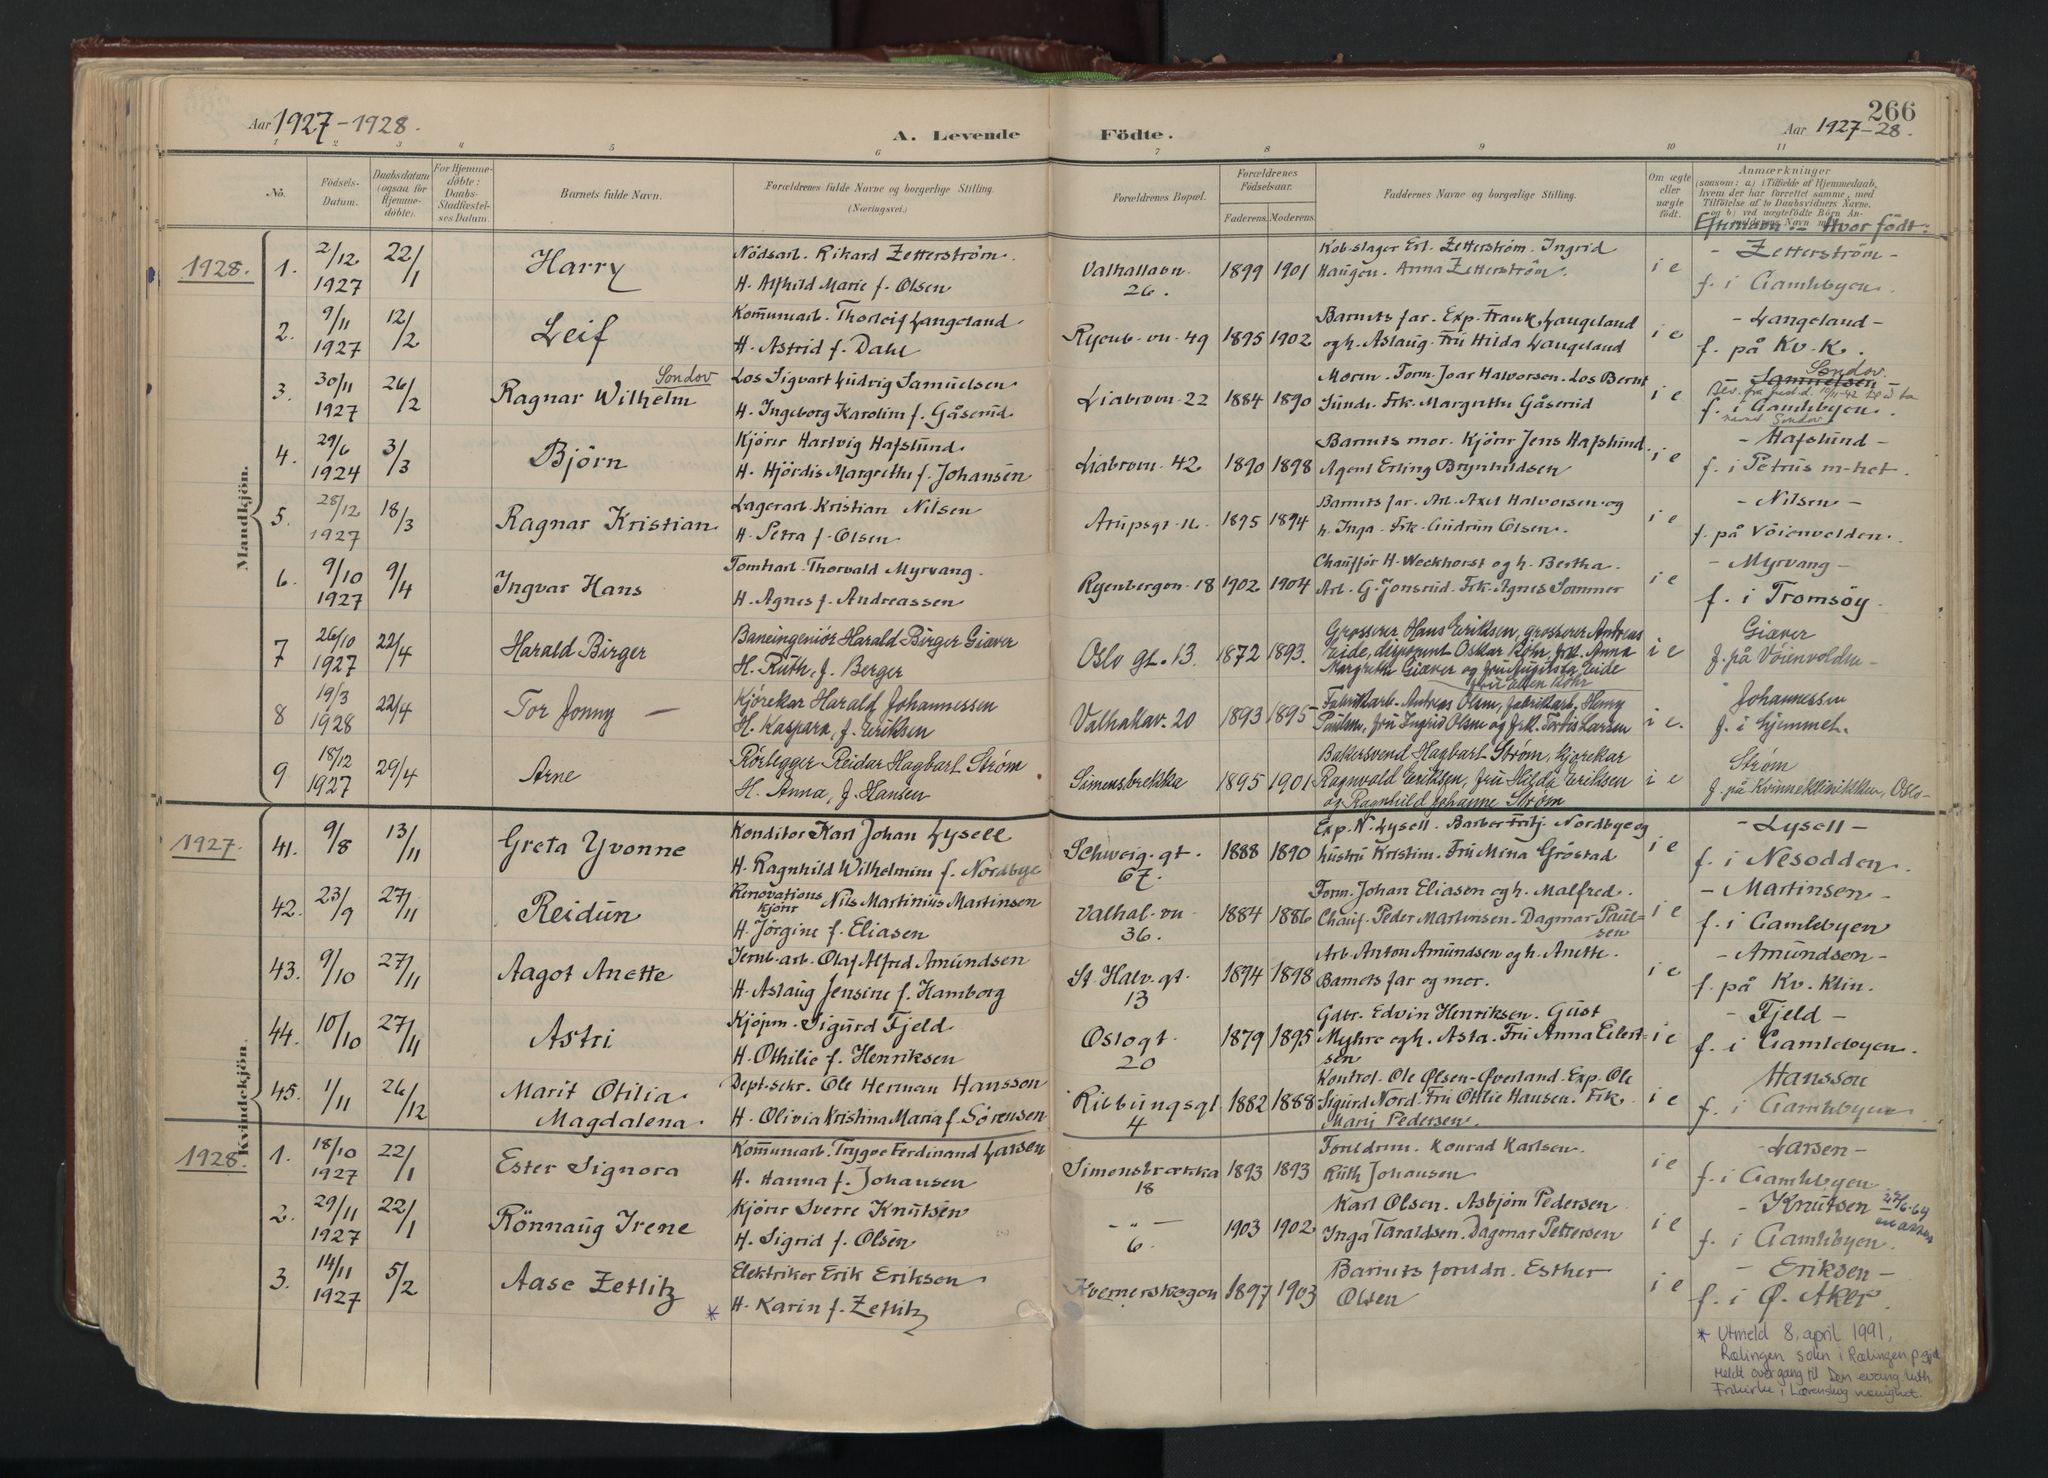 266
Aar 1927-1928.
A. Levende Födte.
Aar 1927-28.
1 2 3 4 5 6 7 8 9 10 11
No.
Födsels-Datum.
Daabsdatum (ogsaa for Hjemmedöbte).
For Hjemmedöbte: Daabs-Stadfæstelses Datum.
Barnets fulde Navn.
Forældrenes fulde Navne og borgerlige Stilling.
(Næringsvei.)
Forældrenes Bopæl.
Forældrenes Födselsaar.
Faderens. Moderens.
Faddernes Navne og borgerlige Stilling.
Om ægte eller uægte födt.
Anmærkninger
(saasom: a) i Tilfælde af Hjemmedaab, hvem der har forrettet samme, med Tilföielse af to Daabsvidners Navne,
Efternavn — Hvor født:
Mandkjön.
1928. 1. 2/12 1927 22/1 Harry
Nödsarb. Rikard Zetterström.
H. Alfhild Marie f. Olsen
Valhallavn. 26. 1899 1901
Kobslager Erl. Zetterström. Ingrid
Haugen. Anna Zetterström.
i e
- Zetterström -
f. i Gamlebyen.
2. 9/11 1927 12/2 Leif
Kommunearb. Thorleif Langeland
H. Astrid f. Dahl
Ryenb. vn. 49 1895 1902
Barnets far. Exp. Frank Langeland
og h. Aslaug. Fru Hilda Langeland
i e
- Langeland -
f. på Kv. K.
3. 30/11 1927 26/2 Ragnar Wilhelm Sondov
Los Sigvart Ludvig Samuelsen
H. Ingeborg Karoline f. Gåserud
Liabrovn. 22 1884 1890
Moren. Form. Joar Halvorsen. Los Bernt
Sunde. Frk. Margrethe Gåserud
i e
Sondov.
Samuelsen
f. i Gamlebyen.
navnet Sondov
4. 29/6 1924 3/3 Björn
Kjörer Hartvig Hafslund.
H. Hjördis Margrethe f. Johansen
Liabrovn. 42 1890 1898
Barnets mor. Kjörer Jens Hafslund
Agent Erling Brynhildsen
i e
- Hafslund -
f. i Petrus m-het.
5. 28/12 1927 18/3 Ragnar Kristian
Lagerarb. Kristian Nilsen
H. Petra f. Olsen
Arupsgt. 11. 1895 1894
Barnets far. Arb. Axel Halvorsen og
h. Inga. Frk. Gudrun Olsen.
i e
- Nilsen -
f. på Vöienvolden.
6. 9/10 1927 9/4 Ingvar Hans
Tomtarb. Thorvald Myrvang.
H. Agnes f. Andreassen
Ryenbergvn. 18 1902 1904
Chaufför H. Weckhorst og h. Bertha.
Arb. G. Jonsrud. Frk. Agnes Sommer
i e
- Myrvang -
f. i Tromsöy.
7 26/10 1927 22/4 Harald Birger
Baneingeniör Harald Birger Giæver
H. Ruth, f. Berger
Oslo gt. 13. 1872 1893.
Grosserer Hans Eriksen, grosserer Andreas
Eide, disponent Oskar Röhr, frk. Anna
Margrethe Giæver og fru Augusta Eide
fru Ellen Röhr
i e
Giæver
f. på Vöienvolden -
8 19/3 1928 22/4 Tor Jonny -
Kjörekar Harald Johannessen
H. Kaspara, f. Eriksen
Valhallav. 20 1893 1895
Fabrikarb. Andreas Olsen, fabrikarb. Henry
Paulsen, fru Ingrid Olsen og frk. Torbis Larsen
i e.
Johannessen
f. i hjemmet.
9 18/12 1927 29/4 Arne
Rörlegger Reidar Hagbart Ström
H. Anna, f. Hansen
Simensbrekka 1895 1901
Bakersvend Hagbart Ström, Gjörekar
Ragnvald Eriksen, fru Hilda Eriksen
og Ragnhild Johanne Ström
i e
Ström
f. på Kvinneklinikken, Oslo -
Kvindekjön.
1927. 41. 9/8 13/11 Greta Yvonne
Konditor Karl Johan Lysell
H. Ragnhild Wilhelmine f. Nordbye
Schweig. gt. 67. 1888 1890
Exp. N. Lysell. Barber Fritj. Nordbye og
hustru Kristine. Fru Mina Gröstad
i e
- Lysell -
f. i Nesodden.
42. 23/9 27/11 Reidun
Renovations kjörer Nils Martinius Martinsen
H. Jörgine f. Eliasen
Valhal. vn. 36. 1884 1886
Form. Johan Eliasen og h. Malfred.
Chauf. Peder Martinsen. Dagmar Paulsen
i e
- Martinsen -
f. i Gamlebyen
43. 9/10 27/11 Aagot Anette
Jernb. arb. Olaf Alfred Amundsen
H. Aslaug Jensine f. Hamborg
St. Halv. gt. 13 1894 1898
Arb. Anton Amundsen og h. Anette.
Barnets far og mor.
i e
- Amundsen -
f. på Kv. Klin.
44. 10/10 27/11 Astri
Kjöpm. Sigurd Fjeld
H. Othilie f. Henriksen
Oslogt. 20 1879 1895
Gdbr. Edvin Henriksen. Gust
Myhre og h. Asta. Fru Anna Eilertsen
i e
- Fjeld -
f. i Gamlebyen.
45. 1/11 26/12 Marit Otilia Magdalena
Dept. sekr. Ole Herman Hansson
H. Olivia Kristina Maria f. Sörensen
Ribbungsgt. 4 1882 1888
Kontrol. Ole Ølsen-Øverland. Exp. Ole
Sigurd Nord. Fru Ottilie Hansen. Frk.
Marie Pedersen.
i e
Hansson
f. i Gamlebyen
1928. 1. 18/10 1927 22/1 Ester Signora
Kommunearb. Trygve Ferdinand Larsen
H. Hanna f. Johansen
Simensbrækka 18 1893 1893
Foreldrene. Konrad Karlsen.
Ruth Johansen
i e
- Larsen -
f. i Gamlebyen.
2. 29/11 1927 22/1 Rönnaug Irene
Kjörer Sverre Knutsen
H. Sigrid f. Olsen
- " - 6. 1903 1902
Karl Olsen. Asbjörn Pedersen
Inga Taraldsen. Dagmar Pettersen
i e
- Knutsen
f. i Gamlebyen.
3. 14/11 1927 5/2 Aase Zetlitz *
Elektriker Erik Eriksen
H. Karin f. Zetlitz
Kværnerskogen 1897 1903
Barnets foreldre. Esther
Olsen
i e
- Eriksen -
f. i Ø. Aker.
* Utmeld 8. april 1991,
Rælingen sokn i Rælingen p.gjd
Meldt overgang til Den evang. luth.
Frikirke i Lørenskog menighet.